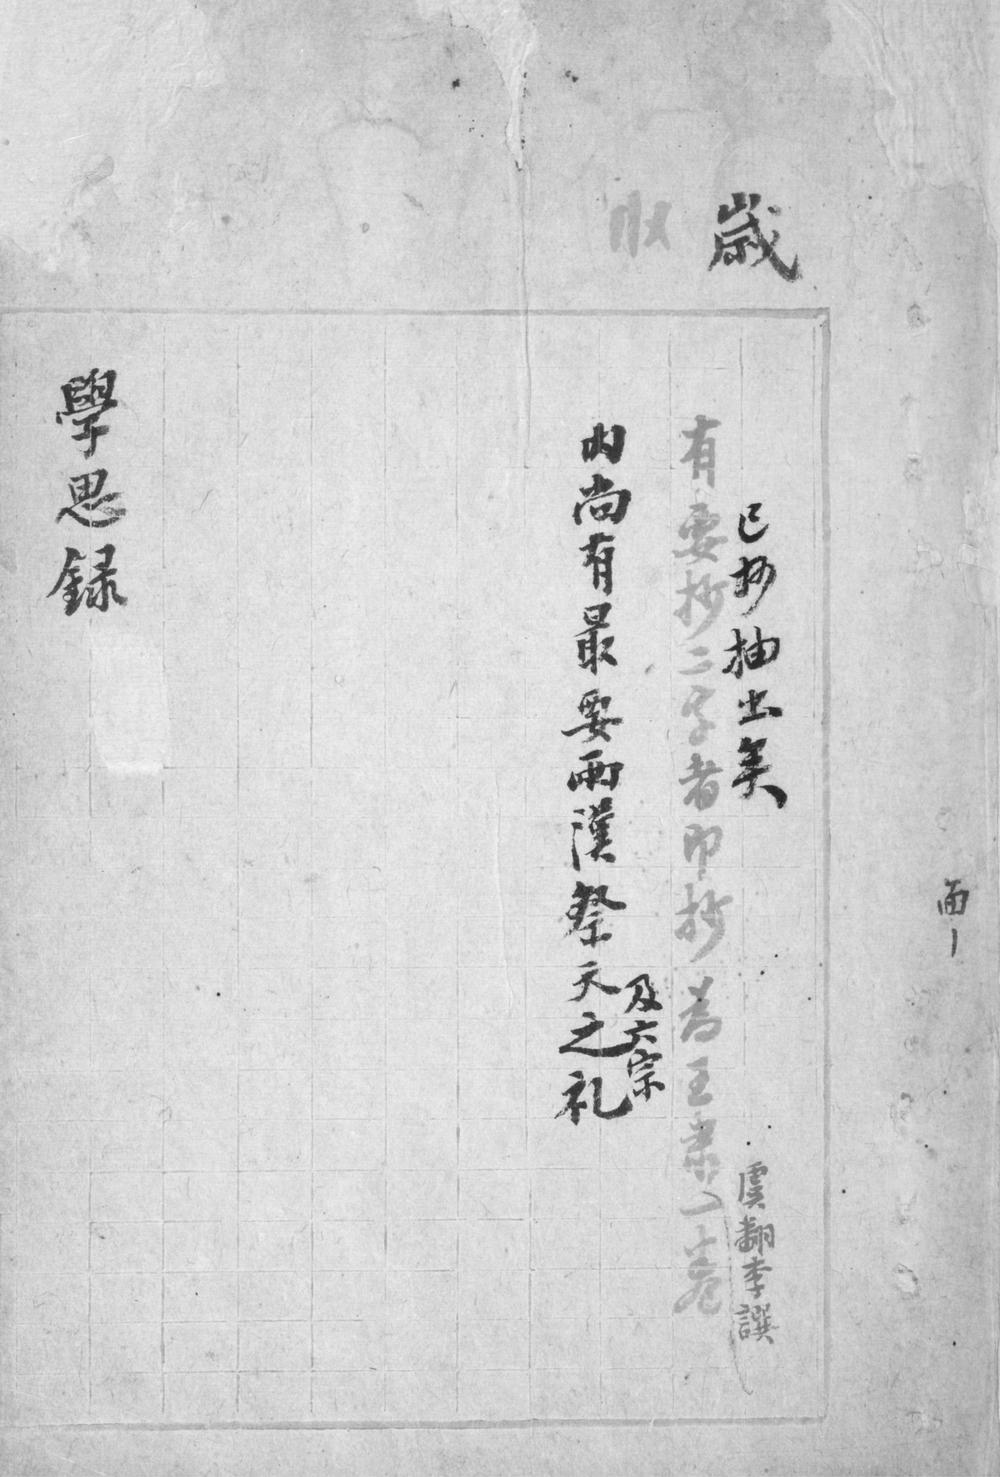 歲
收
已抄抽出矣
虞翻李譔
有要抄二字者即抄為王肅一卷
內尚有最要兩漢祭天之礼
及六宗
學思録